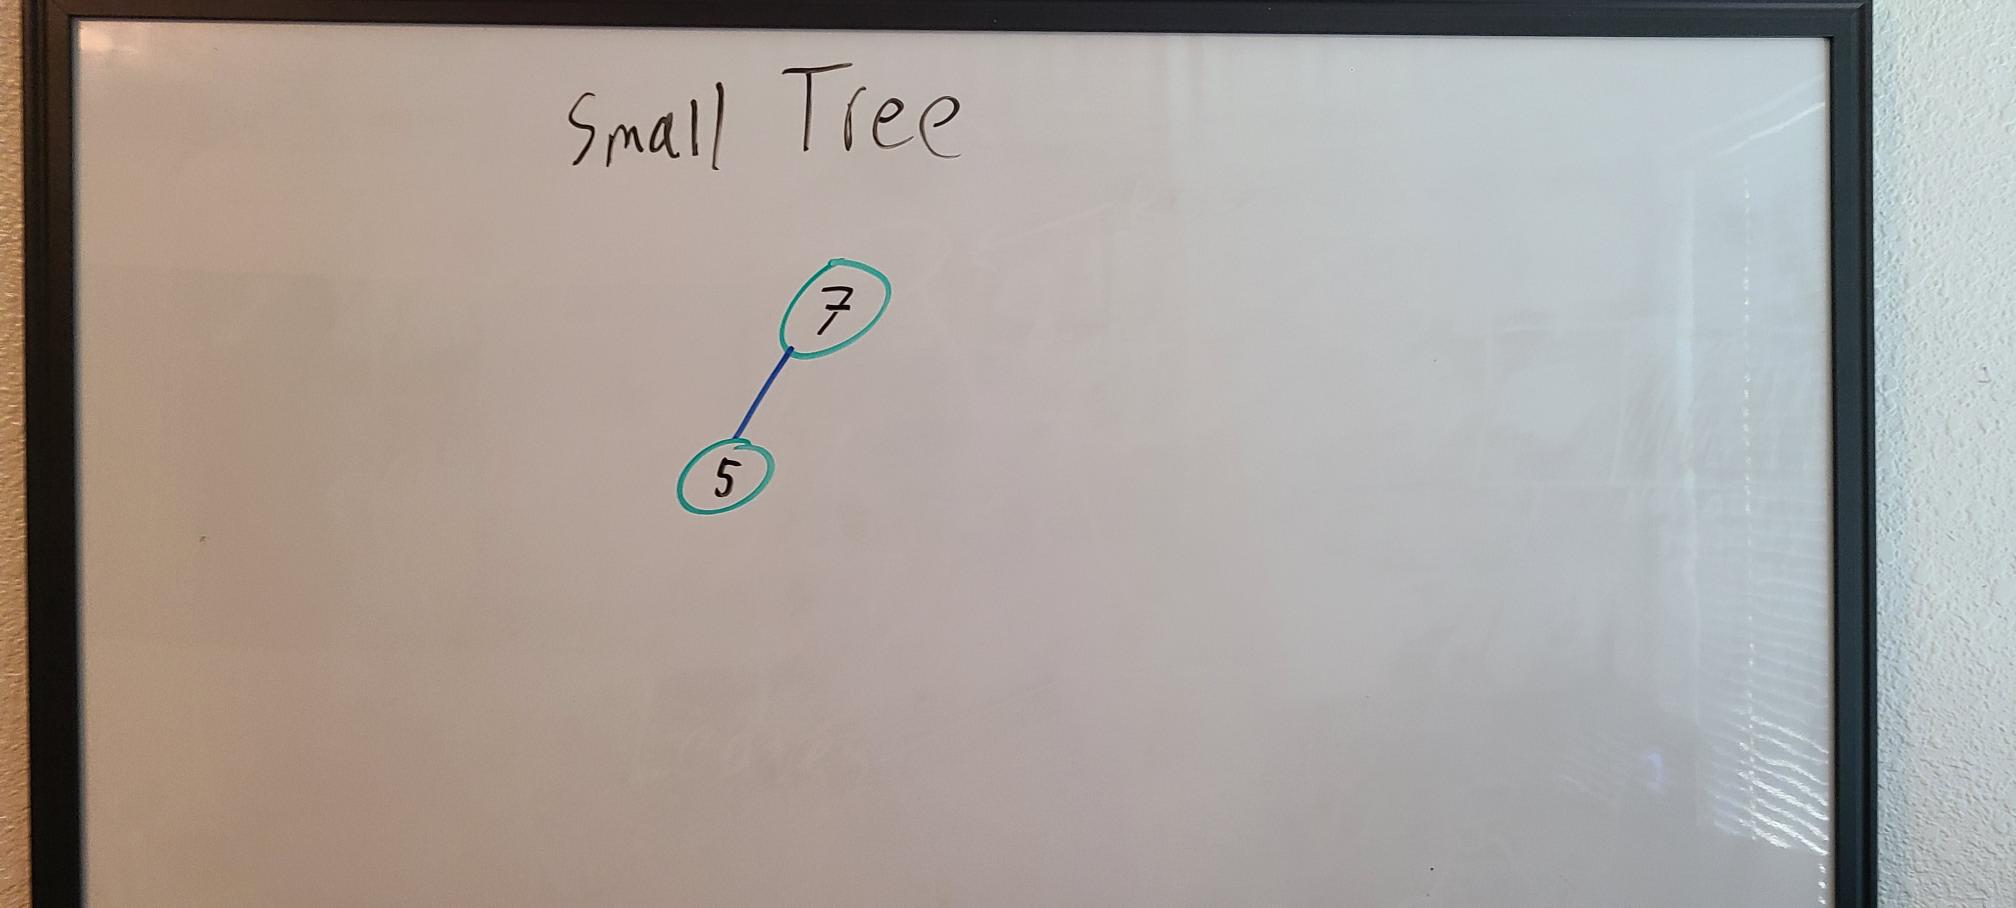 Small Tree
7
5